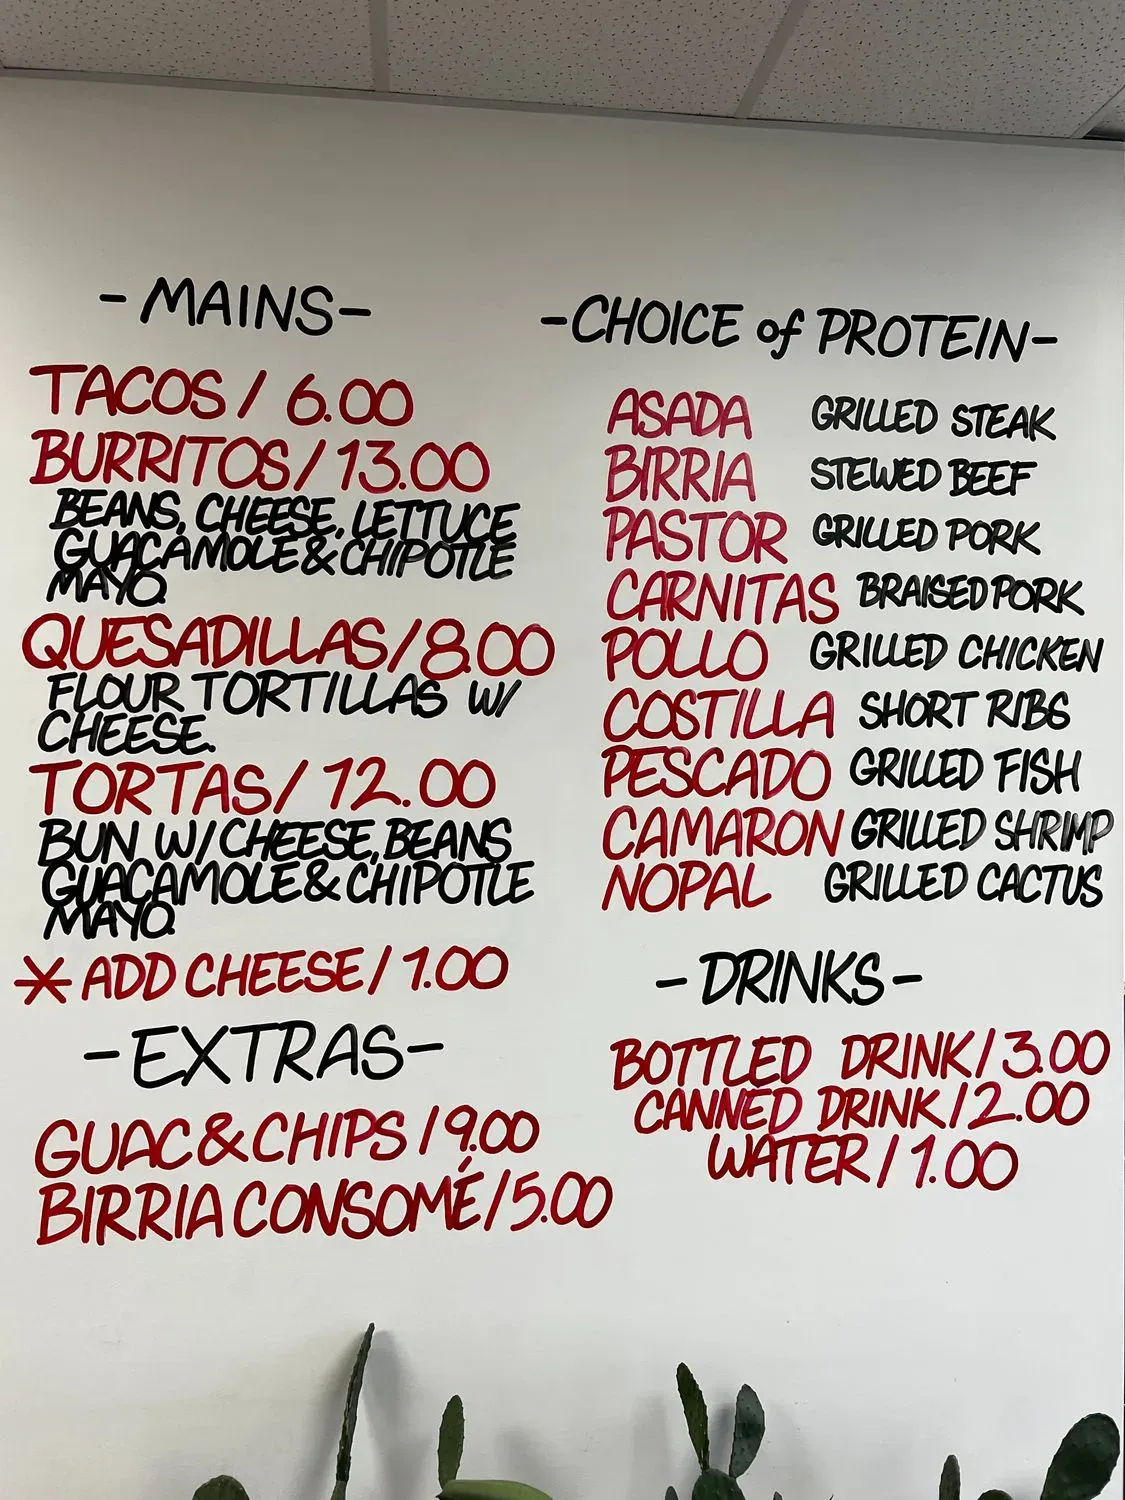 -MAINS-
TACOS / 6.00
BURRITOS / 13.00
BEANS, CHEESE, LETTUCE
GUACAMOLE & CHIPOTLE
MAYO.
QUESADILLAS / 8.00
FLOUR TORTILLAS W/
CHEESE.
TORTAS / 12.00
BUN W/ CHEESE, BEANS
GUACAMOLE & CHIPOTLE
MAYO.
* ADD CHEESE / 1.00
-EXTRAS-
GUAC & CHIPS / 9.00
BIRRIA CONSOMÉ / 5.00
-CHOICE of PROTEIN-
ASADA GRILLED STEAK
BIRRIA STEWED BEEF
PASTOR GRILLED PORK
CARNITAS BRAISED PORK
POLLO GRILLED CHICKEN
COSTILLA SHORT RIBS
PESCADO GRILLED FISH
CAMARON GRILLED SHRIMP
NOPAL GRILLED CACTUS
-DRINKS-
BOTTLED DRINK / 3.00
CANNED DRINK / 2.00
WATER / 1.00